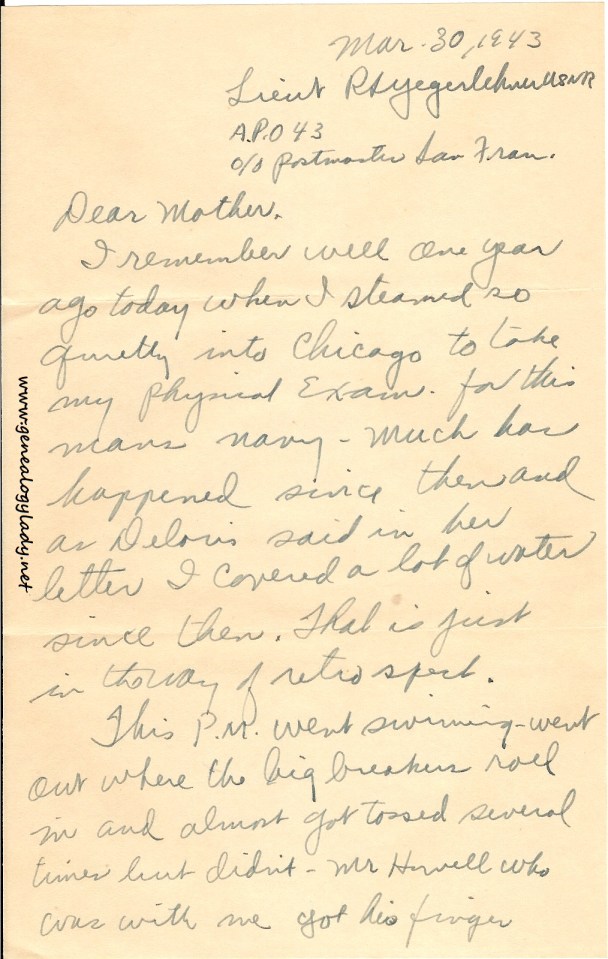 Mar. 30, 1943
Lieut RSYegerlehner USNR
A.P.O 43
c/o Postmaster San Fran.
Dear Mother.
I remember well one year
ago today when I steamed so
quietly into Chicago to take
my physical Exam. for this
mans navy - much has
happened since then and
as Deloris said in her
letter I covered a lot of water
since then. That is just
in the way of retrospect.
This P.M. went swimming - went
out where the big breakers roll
in and almost got tossed several
times but didn't - Mr Howell who
was with me got his finger
www.genealogylady.net